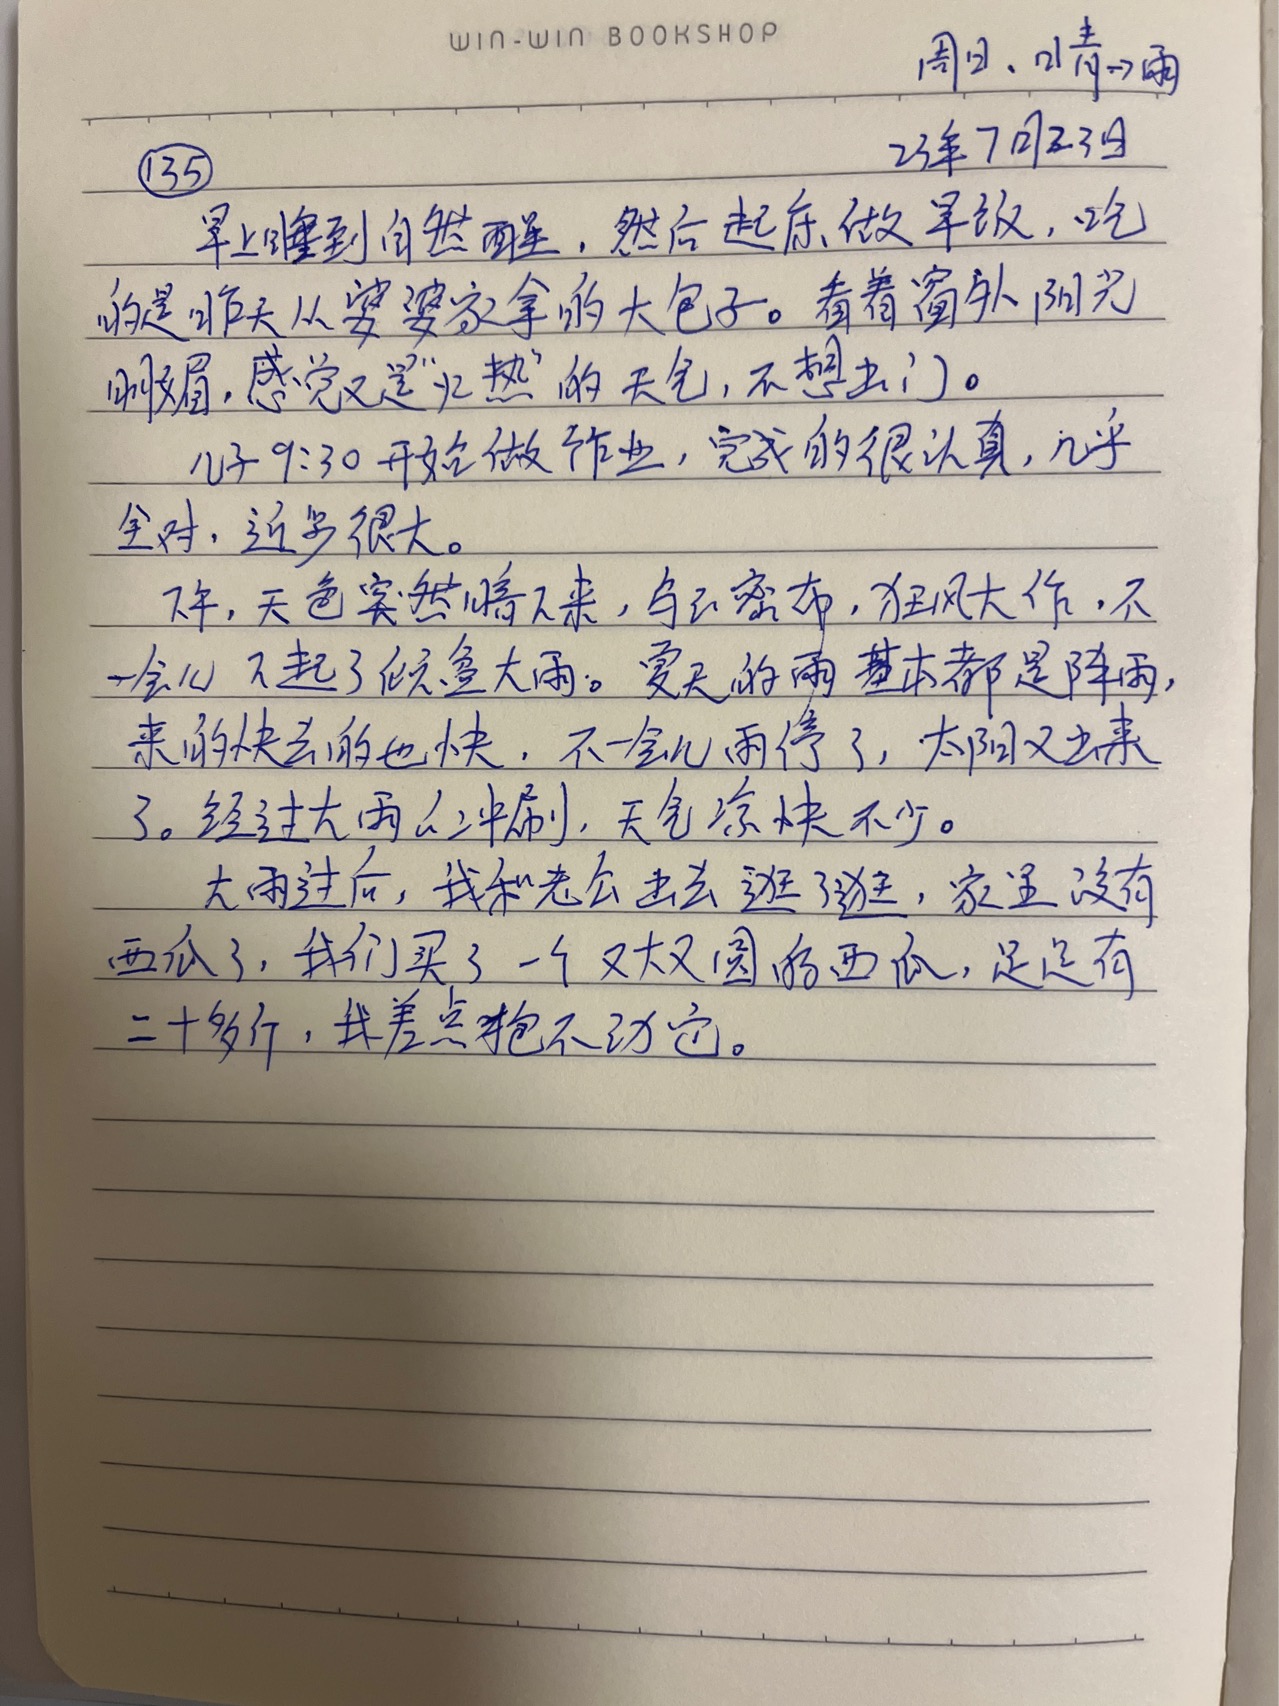 WIN-WIN BOOKSHOP
周日、晴→雨
23年7月23日
135
早上睡到自然醒，然后起床做早饭，吃
的是昨天从婆婆家拿的大包子。看着窗外阳光
明媚，感觉又是“火热”的天气，不想出门。
儿子9:30开始做作业，完成的很认真，几乎
全对，近步很大。
下午，天色突然暗下来，乌云密布，狂风大作，不
一会儿下起了倾盆大雨。夏天的雨基本都是阵雨，
来的快去的也快，不一会儿雨停了，太阳又出来
了。经过大雨的冲刷，天气凉快不少。
大雨过后，我和老公出去逛了逛，家里没有
西瓜了，我们买了一个又大又圆的西瓜，足足有
二十多斤，我差点抱不动它。